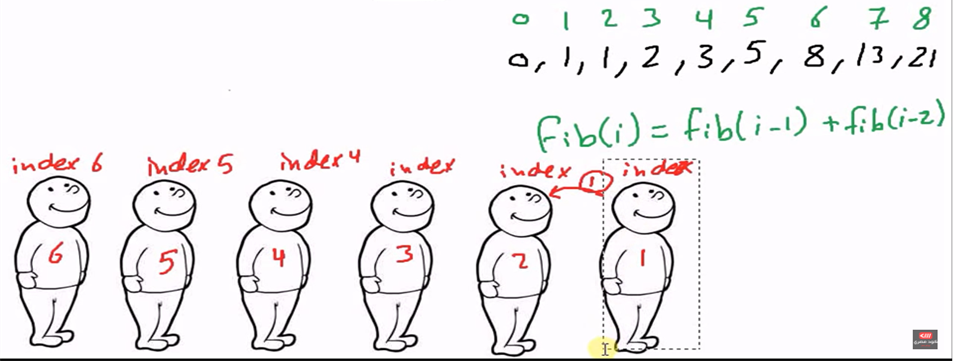 0 1 2 3 4 5 6 7 8
0, 1, 1, 2, 3, 5, 8, 13, 21
fib(i) = fib(i-1) + fib(i-2)
index 6 index 5 index 4 index index 1 index
6 5 4 3 2 1